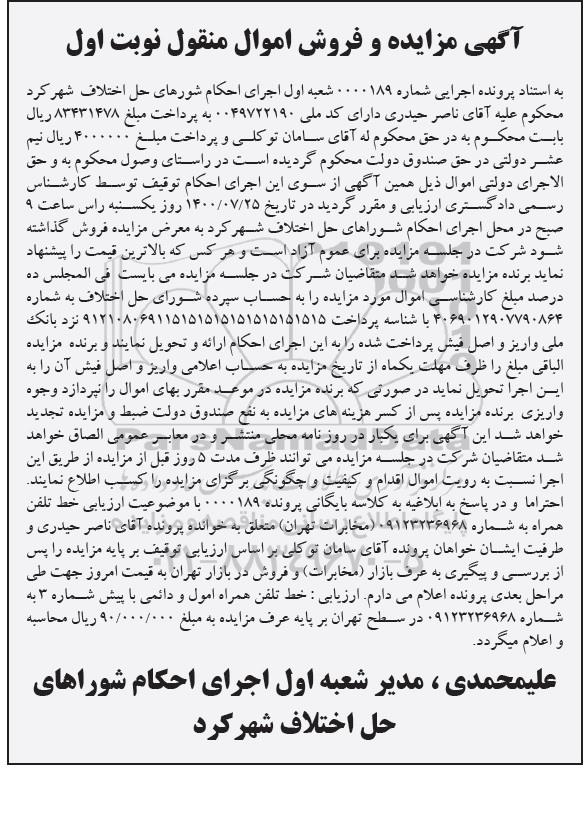 آگهی مزایده و فروش اموال منقول نوبت اول
به استناد پرونده اجرایی شماره ۰۰۰۰۱۸۹ شعبه اول اجرای احکام شورهای حل اختلاف شهرکرد
محکوم علیه آقای ناصر حیدری دارای کد ملی ۰۰۴۹۷۲۲۱۹۰ به پرداخت مبلغ ۸۳۴۳۱۴۷۸ ریال
بابت محکوم به در حق محکوم له آقای سامان توکلی و پرداخت مبلغ ۴۰۰۰۰۰۰ ریال نیم
عشر دولتی در حق صندوق دولت محکوم گردیده است در راستای وصول محکوم به و حق
الاجرای دولتی اموال ذیل همین آگهی از سوی این اجرای احکام توقیف توسط کارشناس
رسمی دادگستری ارزیابی و مقرر گردید در تاریخ ۱۴۰۰/۰۷/۲۵ روز یکشنبه راس ساعت ۹
صبح در محل اجرای احکام شوراهای حل اختلاف شهرکرد به معرض مزایده فروش گذاشته
شود شرکت در جلسه مزایده برای عموم آزاد است و هر کس که بالاترین قیمت را پیشنهاد
نماید برنده مزایده خواهد شد متقاضیان شرکت در جلسه مزایده می بایست فی المجلس ده
درصد مبلغ کارشناسی اموال مورد مزایده را به حساب سپرده شورای حل اختلاف به شماره
۴۰۶۹۰۱۲۹۰۷۷۹۰۸۶۴ با شناسه پرداخت ۹۱۲۱۰۸۰۶۹۱۱۵۱۵۱۵۱۵۱۵۱۵۱۵۱۵۱۵ نزد بانک
ملی واریز و اصل فیش پرداخت شده را به این اجرای احکام ارائه و تحویل نمایند و برنده مزایده
الباقی مبلغ را ظرف مهلت یکماه از تاریخ مزایده به حساب اعلامی واریز و اصل فیش آن را به
این اجرا تحویل نماید در صورتی که برنده مزایده در موعد مقرر بهای اموال را نپردازد وجوه
واریزی برنده مزایده پس از کسر هزینه های مزایده به نفع صندوق دولت ضبط و مزایده تجدید
خواهد شد این آگهی برای یکبار در روز نامه محلی منتشر و در معابر عمومی الصاق خواهد
شد متقاضیان شرکت در جلسه مزایده می توانند ظرف مدت ۵ روز قبل از مزایده از طریق این
اجرا نسبت به رویت اموال اقدام و کیفیت و چگونگی برگزای مزایده را کسب اطلاع نمایند.
احتراما و در پاسخ به ابلاغیه به کلاسه بایگانی پرونده ۰۰۰۰۱۸۹ با موضوعیت ارزیابی خط تلفن
همراه به شماره ۰۹۱۲۳۲۳۶۹۶۸ (مخابرات تهران) متعلق به خوانده پرونده آقای ناصر حیدری و
طرفیت ایشان خواهان پرونده آقای سامان توکلی بر اساس ارزیابی توقیف بر پایه مزایده را پس
از بررسی و پیگیری به عرف بازار (مخابرات) و فروش در بازار تهران به قیمت امروز جهت طی
مراحل بعدی پرونده اعلام می دارم. ارزیابی : خط تلفن همراه امول و دائمی با پیش شماره ۳ به
شماره ۰۹۱۲۳۲۳۶۹۶۸ در سطح تهران بر پایه عرف مزایده به مبلغ ۹۰/۰۰۰/۰۰۰ ریال محاسبه
و اعلام میگردد.
علیمحمدی ، مدیر شعبه اول اجرای احکام شوراهای
حل اختلاف شهرکرد
ParsNamadData
۰۲۱-۸۸۳۴۹۶۷۰-۵